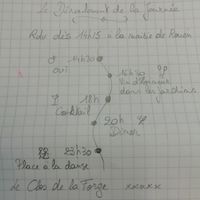 Le Déroulement de la journée
Rdv dès 14h15 à la mairie de Rouen
14h30
Oui
16h30
Vin d'honneur
dans les jardins
18h
Cocktail
20h
Dîner
23h30
Place à la danse
Le Clos de la Forge xxxxx